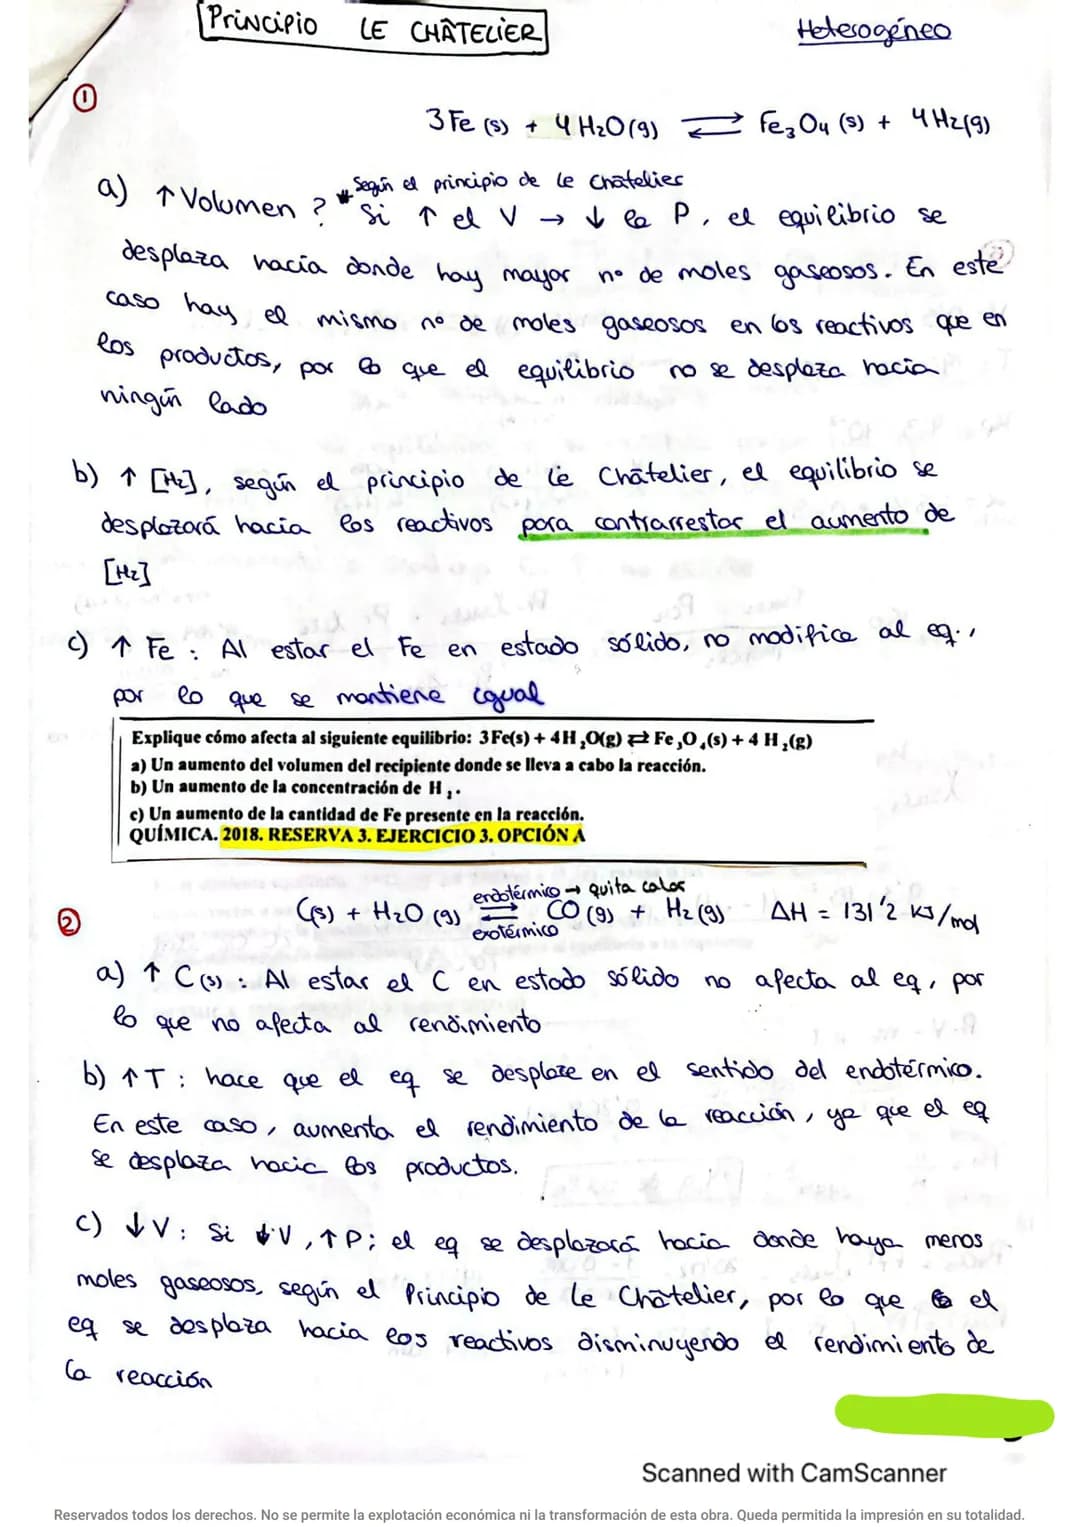 Principio LE CHÂTELIER
Heterogéneo
①
3 Fe (s) + 4 H₂O (g) ⇄ Fe₃O₄ (s) + 4 H₂ (g)
* Según el principio de Le Chatelier
a) ↑ Volumen ? Si ↑ el V → ↓ la P, el equilibrio se
desplaza hacia donde hay mayor nº de moles gaseosos. En este
caso hay el mismo nº de moles gaseosos en los reactivos que en
los productos, por lo que el equilibrio no se desplaza hacia
ningún lado
b) ↑ [H₂], según el principio de Le Châtelier, el equilibrio se
desplazará hacia los reactivos para contrarrestar el aumento de
[H₂]
c) ↑ Fe : Al estar el Fe en estado sólido, no modifica al eq.,
por lo que se mantiene igual
Explique cómo afecta al siguiente equilibrio: 3Fe(s) + 4H₂O(g) ⇄ Fe₃O₄(s) + 4 H₂(g)
a) Un aumento del volumen del recipiente donde se lleva a cabo la reacción.
b) Un aumento de la concentración de H₂.
c) Un aumento de la cantidad de Fe presente en la reacción.
QUÍMICA. 2018. RESERVA 3. EJERCICIO 3. OPCIÓN A
endotérmico → quita calor
② C(s) + H₂O (g) ⇄ CO (g) + H₂ (g) ΔH = 131'2 KJ/mol
exotérmico
a) ↑ C (s) : Al estar el C en estado sólido no afecta al eq, por
lo que no afecta al rendimiento
b) ↑T : hace que el eq se desplaze en el sentido del endotérmico.
En este caso, aumenta el rendimiento de la reacción, ya que el eq
se desplaza hacia los productos.
c) ↓V: Si ↓V, ↑P; el eq se desplazará hacia donde haya menos
moles gaseosos, según el Principio de Le Châtelier, por lo que el
eq se desplaza hacia los reactivos disminuyendo el rendimiento de
la reacción
Scanned with CamScanner
Reservados todos los derechos. No se permite la explotación económica ni la transformación de esta obra. Queda permitida la impresión en su totalidad.